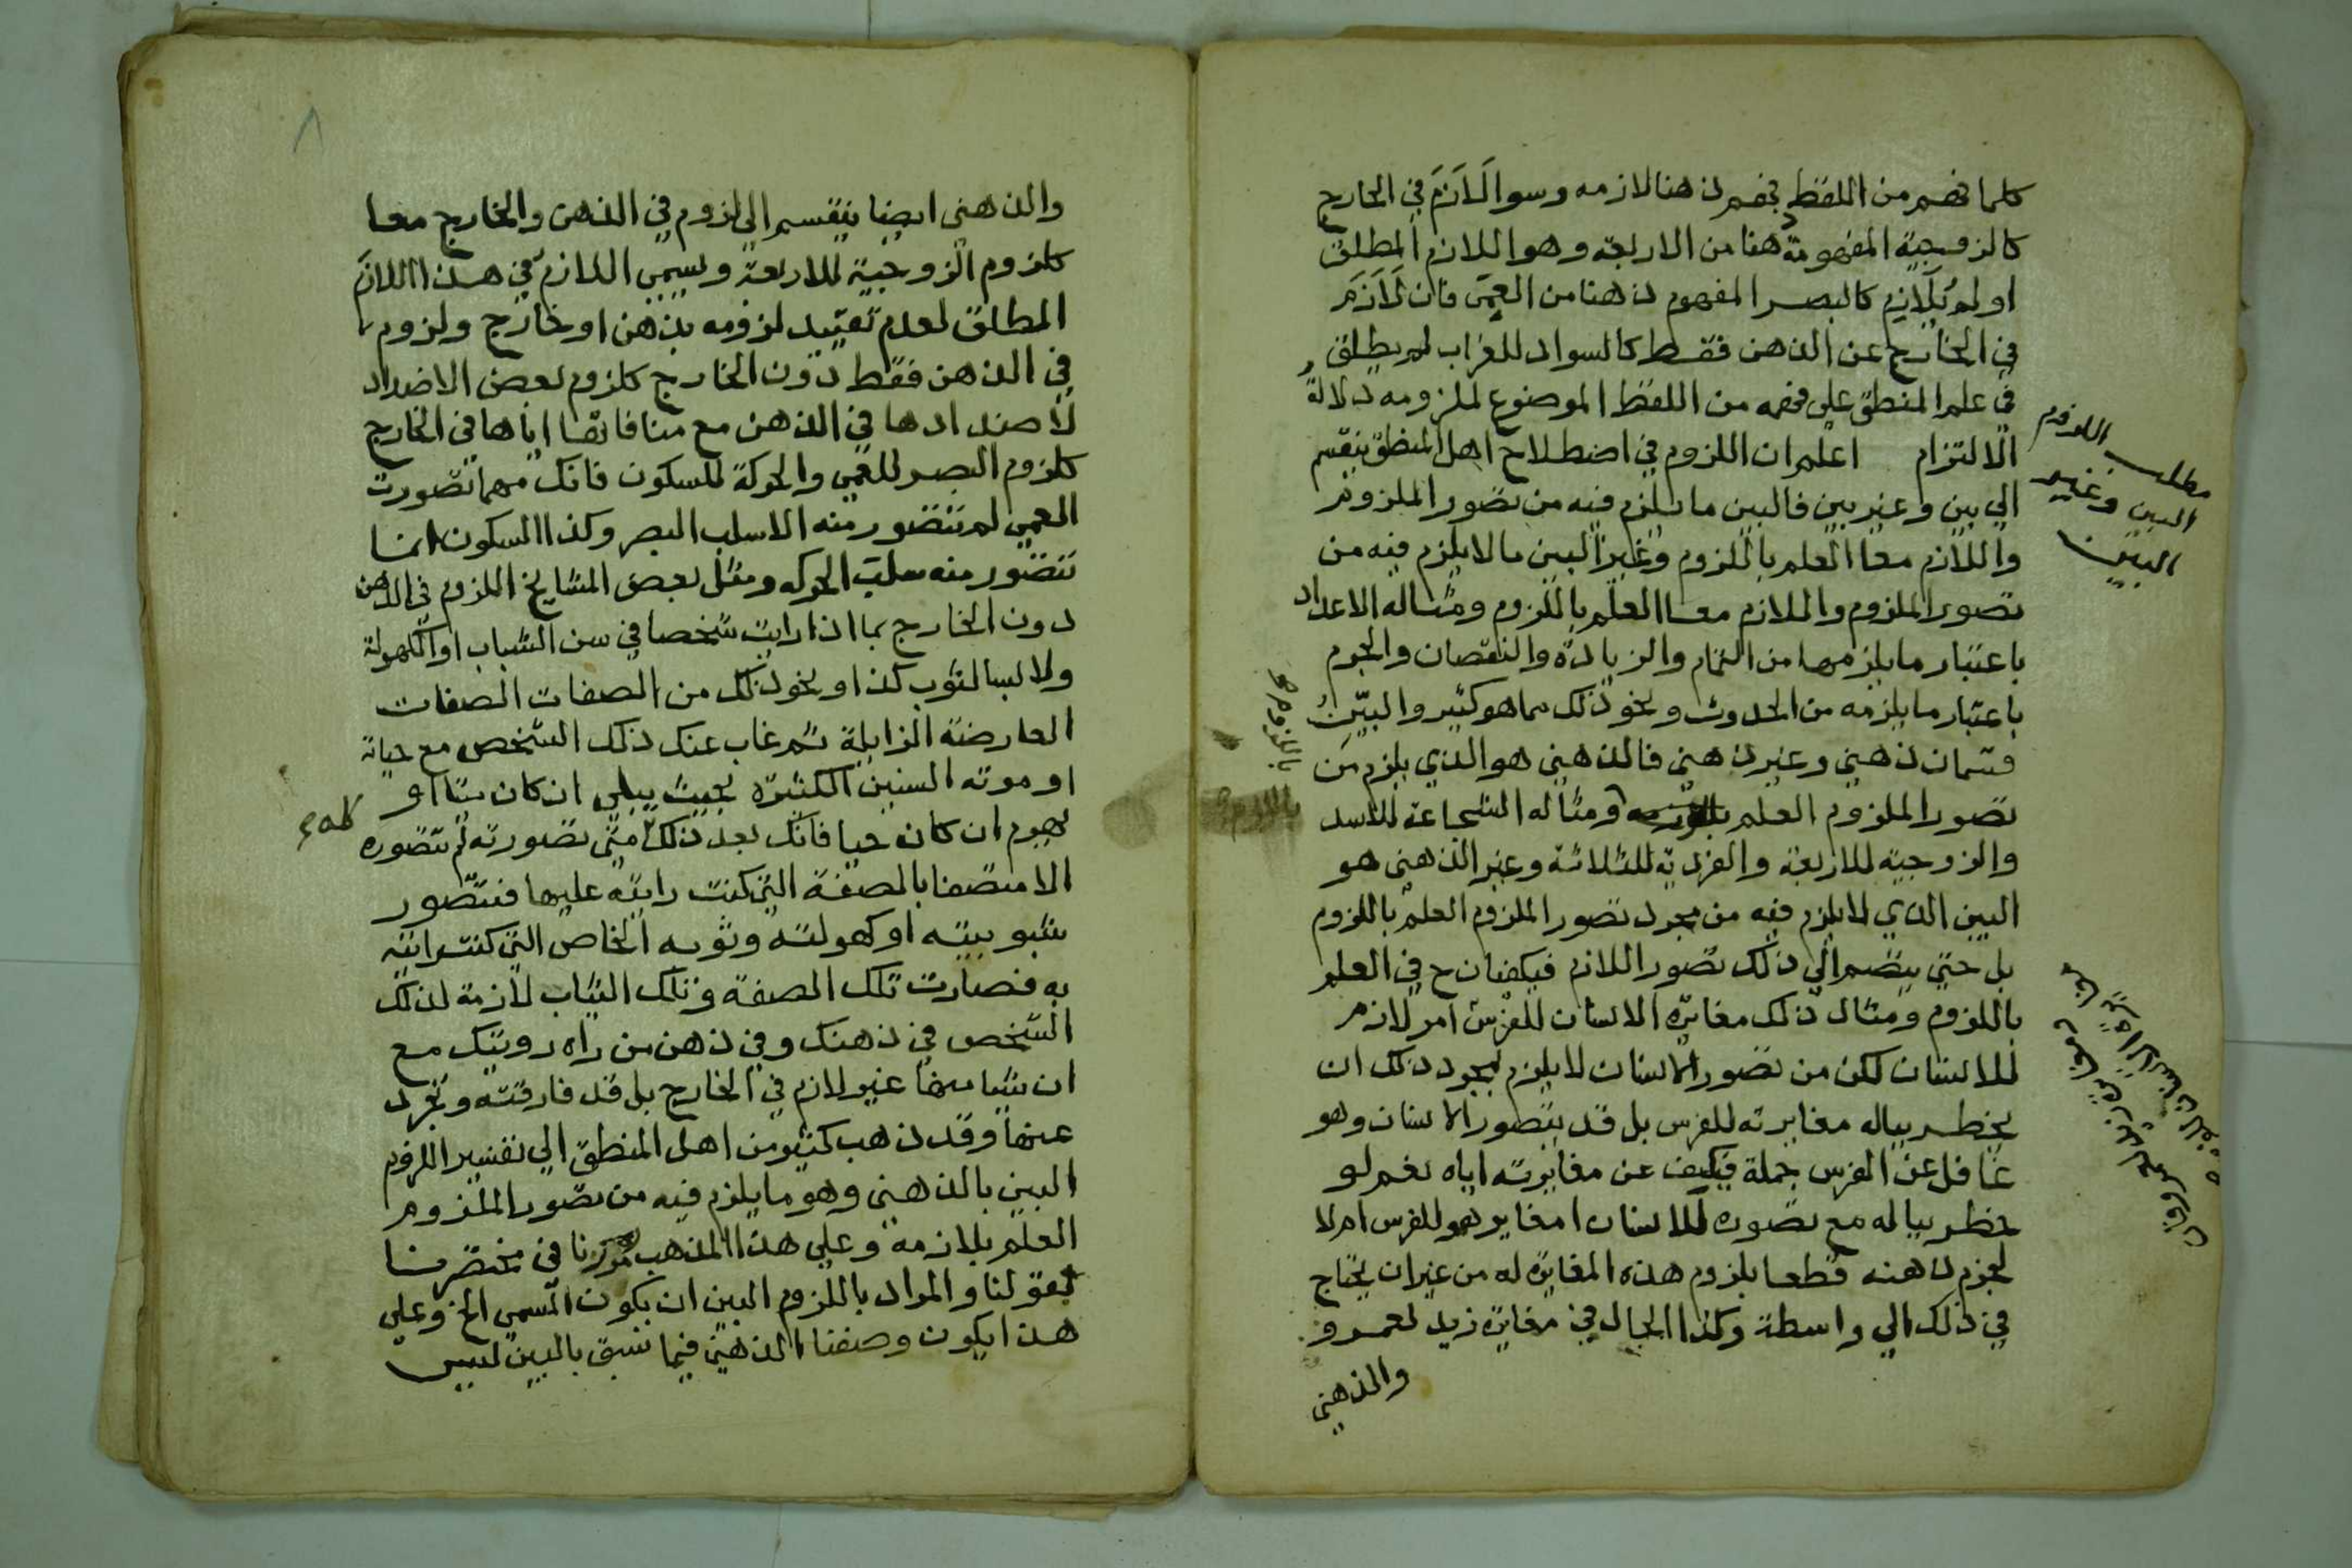 كلما فهم من اللفظ فهم ذهنا لازمه وسوا لَازَمَ في الخارج
كالزوجية المفهومة ذهنا من الاربعة وهو اللازم المطلق
او لم يُلَازم كالبصر المفهوم ذهنا من العمى فان لَازَمَ
في الخارج عن الذهن فقط كالسواد للغراب لم يطلق
في علم المنطق على فهمه من اللفظ الموضوع لملزومه دلالةُ
الالتزام اعلم ان اللزوم في اصطلاح اهل المنطق ينقسم
الي بين وغير بين فالبين ما يلزم فيه من تصور الملزوم
واللازم معا العلم باللزوم وغير البين ما لا يلزم فيه من
تصور الملزوم والملازم معا العلم باللزوم ومثاله الاعداد
باعتبار ما يلزمها من التمام والزيادة والنقصان والجرم
باعتبار ما يلزمه من الحدوث ونحو ذلك مما هو كثير والبيّنُ
قسمان ذهني وغير ذهني فالذهني هو الذي يلزم مَن
تصور الملزوم العلم ومثاله الشجاعة للاسد
والزوجية للاربعة والفردية للثلاثة وغير الذهني هو
البين الذي لا يلزم فيه من مجرد تصور الملزوم العلم باللزوم
بل حتي ينضم الي ذلك تصور اللازم فيكفيان ح في العلم
باللزوم ومثال ذلك مغايرة الانسان للفرس امر لازم
للانسان لكن من تصور الانسان لا يلزم لمجرد ذلك ان
يخطر بباله مغايرته للفرس بل قد يتصور الانسان وهو
غافل عن الفرس جملة فكيف عن مغايرته اياه نعم لو
خطر بباله مع تصوره للانسان امغاير هو للفرس ام لا
لجزم ذهنه قطعا بلزوم هذه المغايرة له من غير ان يحتاج
في ذلك الي واسطة وكذا الحال في مغايرة زيد لعمرو
والذهني
مطلب اللزوم
البين وغير
البين
باللزوم
والذهني ايضا ينقسم الي لزوم في الذهن والخارج معا
كلزوم الزوجية للاربعة ويسمي اللازم في هذا اللازَم
المطلق لعدم تقييد لزومه بذهن او خارج ولزوم
في الذهن فقط دون الخارج كلزوم بعض الاضداد
لاضدادها في الذهن مع منافاتها اياها في الخارج
كلزوم البصر للعمي والحركة للسكون فانك مهما تصورت
العمي لم تتصور منه الا سلب البصر وكذا السكون انما
تتصور منه سلب الحركه ومثل بعض المشايخ اللزوم في الذهن
دون الخارج بما اذا رايت شخصا في سن الشباب او الكهولة
ولابسا لثوب كذا ونحو ذلك من الصفات الصفات
العارضة الزايلة ثم غاب عنك ذلك الشخص مع حياته
او موته السنين الكثيرة بحيث يبلي ان كان ميتا او
يهرم ان كان حيا فانك بعد ذلك متى تصورته لم تتصوره
الا متصفا بالصفة التي كنت رايته عليها فتتصور
شبوبيته او كهولته وثوبه الخاص التي كنت رايته
به فصارت تلك الصفة وتلك الثياب لازمة لذلك
الشخص في ذهنك وفي ذهن من راه رويتك مع
ان شيا منها غير لازم في الخارج بل قد فارقته وتجرد
عنها وقد ذهب كثير من اهل المنطق الي تفسير اللزوم
البين بالذهني وهو ما يلزم فيه من تصور الملزوم
العلم بلازمه وعلي هذا المذهب مررنا في مختصرنا
بقولنا والمراد باللزوم البين ان يكون المسمى الخ وعلي
هذا يكون وصفنا الذهني فيما سبق بالبين ليس